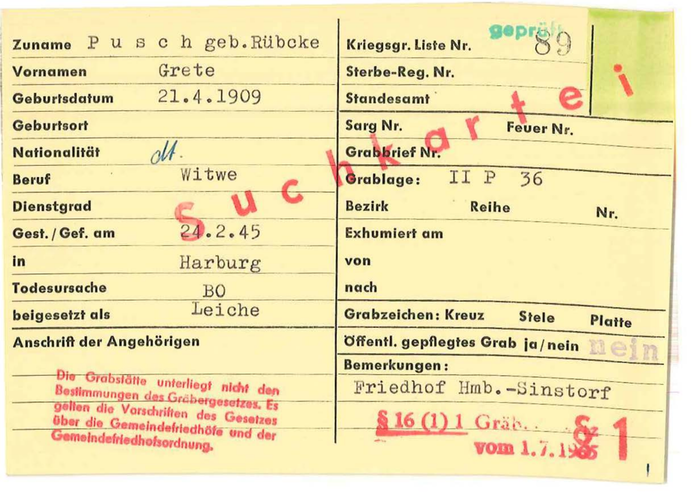 Zuname P u s c h geb.Rübcke
Vornamen Grete
Geburtsdatum 21.4.1909
Geburtsort
Nationalität dt.
Beruf Witwe
Dienstgrad
Gest./Gef. am 24.2.45
in Harburg
Todesursache BO
beigesetzt als Leiche
Anschrift der Angehörigen
Die Grabstätte unterliegt nicht den
Bestimmungen des Gräbergesetzes. Es
gelten die Vorschriften des Gesetzes
über die Gemeindefriedhöfe und der
Gemeindefriedhofsordnung.
Suchkartei
geprüft
Kriegsgr. Liste Nr. 89
Sterbe-Reg. Nr.
Standesamt
Sarg Nr. Feuer Nr.
Grabbrief Nr.
Grablage: II P 36
Bezirk Reihe Nr.
Exhumiert am
von
nach
Grabzeichen: Kreuz Stele Platte
Öffentl. gepflegtes Grab ja/nein nein
Bemerkungen:
Friedhof Hmb.-Sinstorf
§ 16 (1) 1 Gräb.
vom 1.7.1965
§ 1